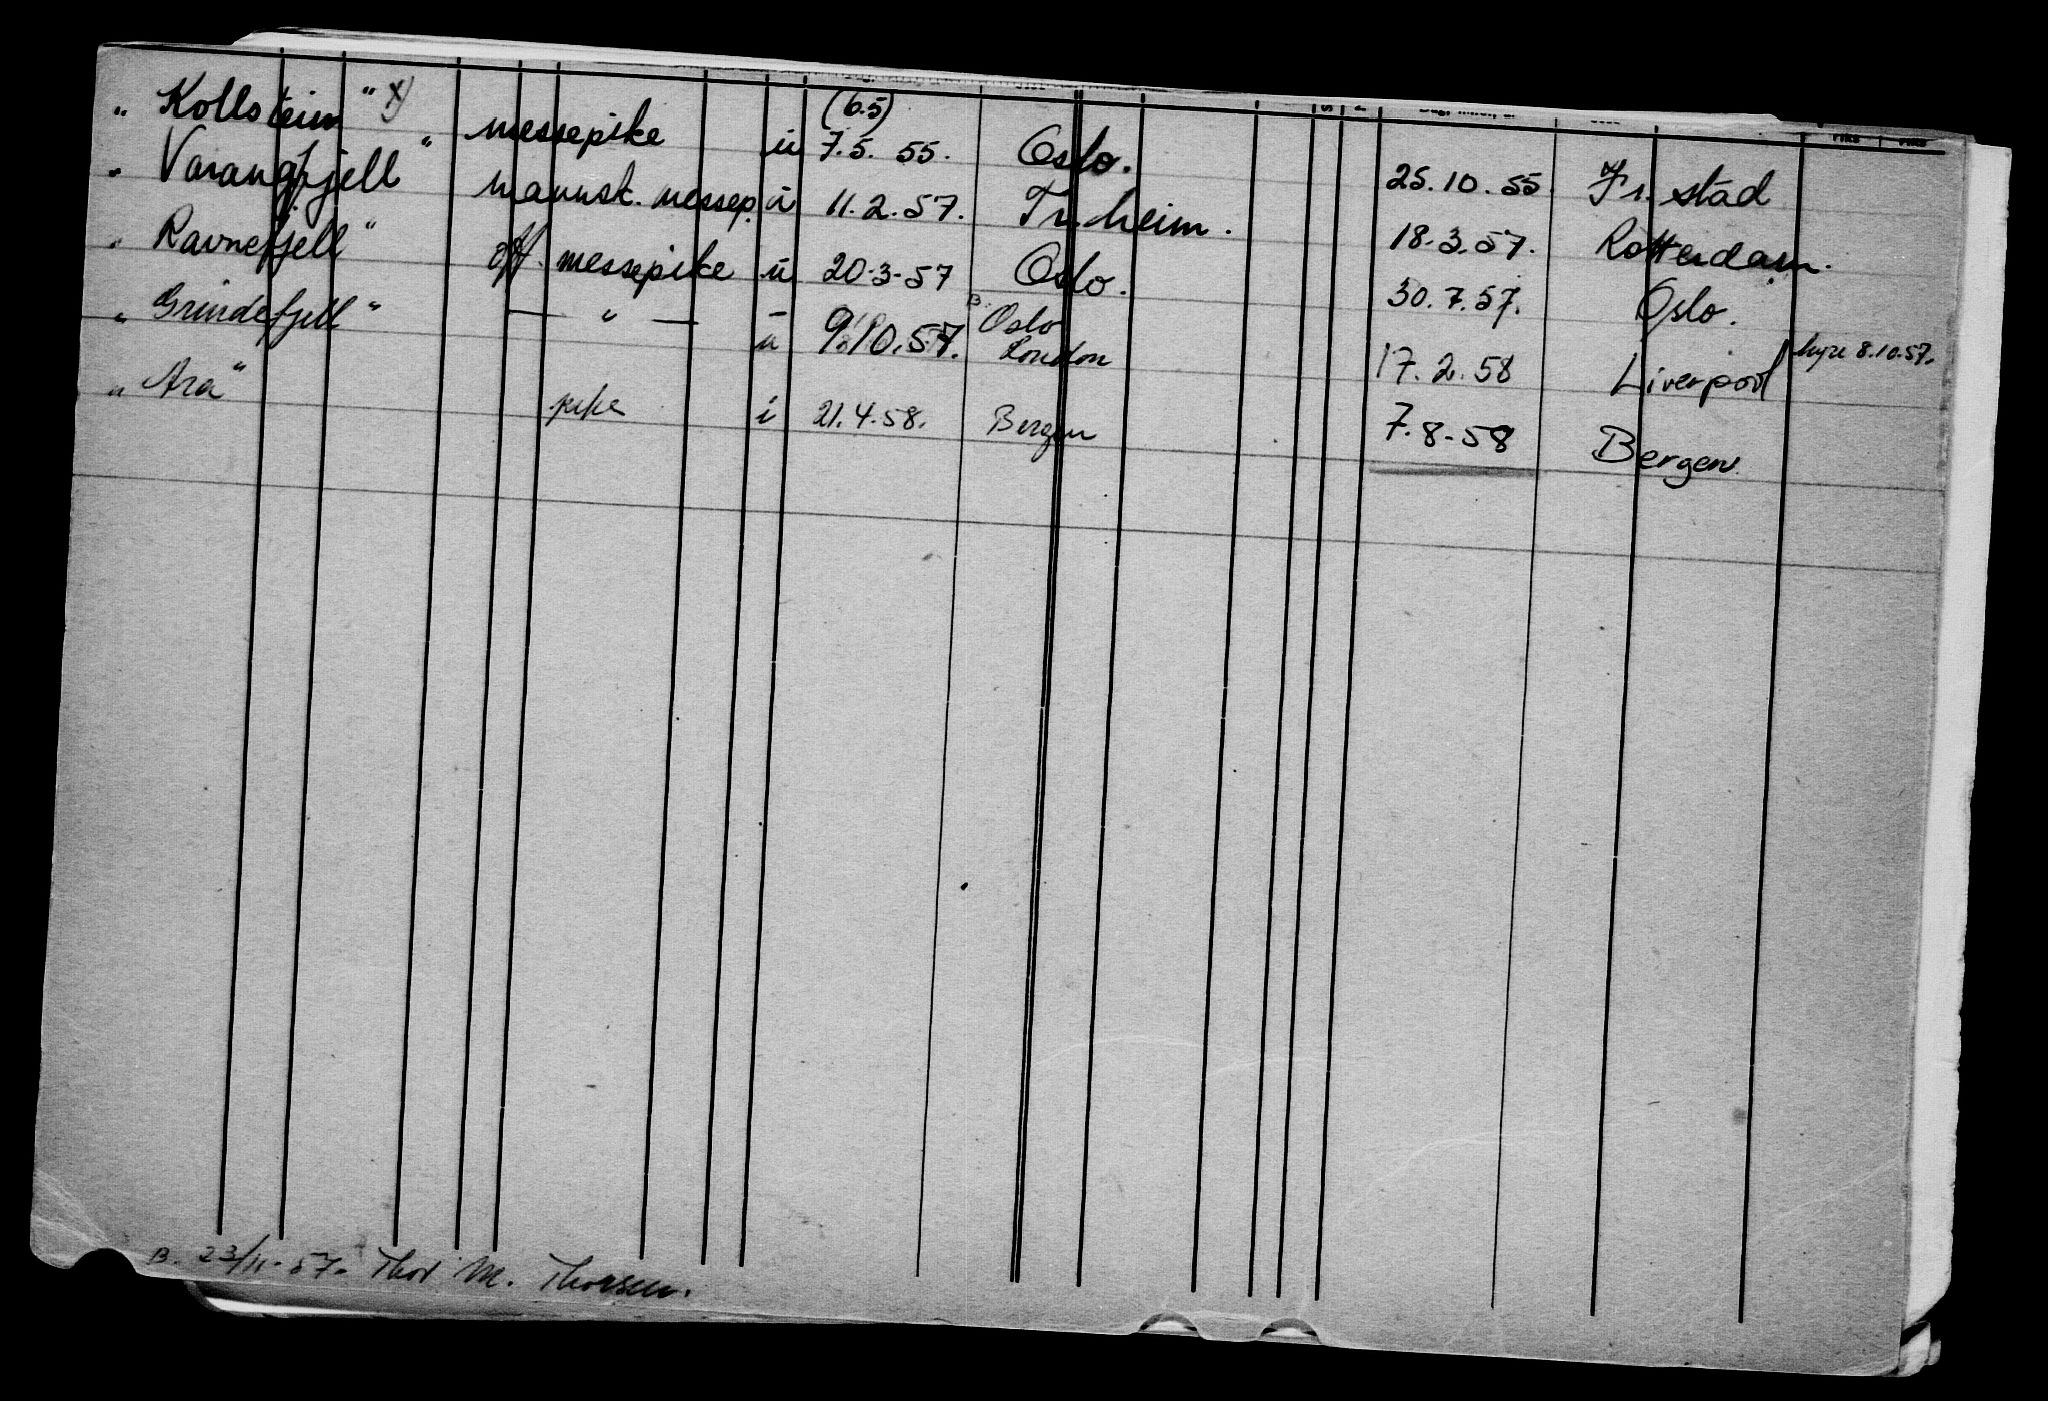 (6.5)
" Kollsteim " x) messepike u 7.5. 55. Oslo. 25.10.55. Fr.stad
" Varangfjell " mannsk. messep. u 11.2.57. Tr.heim. 18.3.57. Rotterdam.
" Ravnefjell " off. messepike u 20-3-57 Oslo. 30.7.57. Oslo.
" Grindefjell " — " — u 9.10.57. B. Oslo London 17.2.58 Liverpool hyre 8.10.57.
" Ara " pike i 21.4.58. Bergen 7.8-58 Bergen.
B. 23/11-57- Thor M. Thorsen.